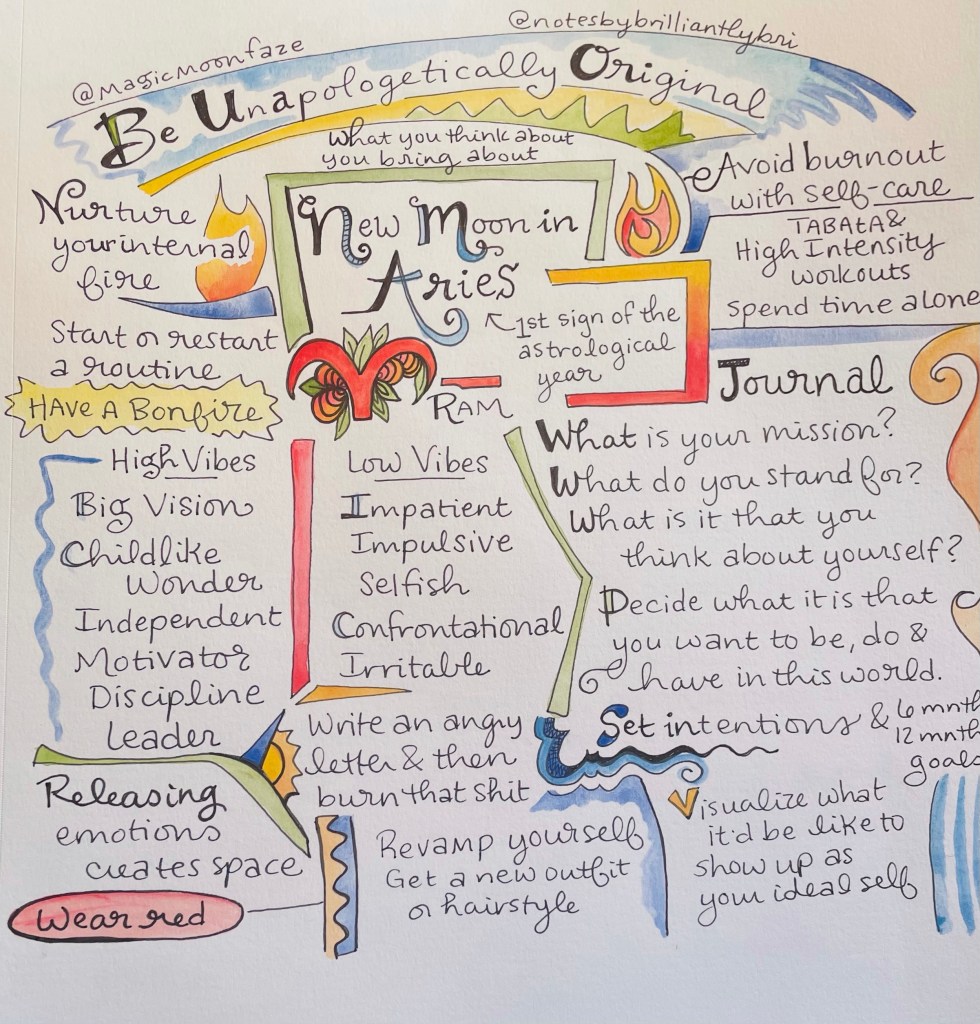 @magicmoonfaze
@notesbybrilliantlybri
Be Unapologetically Original
What you think about
you bring about
Nurture
your internal
fire
Start or restart
a routine
HAVE A BonfiRe
New Moon in
Aries
1st sign of the
astrological
year
RAM
Avoid burnout
with self-care
TABAtA &
High Intensity
workouts
spend time alone
High Vibes
Big Vision
Childlike
Wonder
Independent
Motivator
Discipline
Leader
Low Vibes
Impatient
Impulsive
Selfish
Confrontational
Irritable
Journal
What is your mission?
What do you stand for?
What is it that you
think about yourself?
Decide what it is that
you want to be, do &
have in this world.
Set intentions & 6 mnth
12 mnth
goals
Releasing
emotions
creates space
Wear red
Write an angry
letter & then
burn that shit
Revamp yourself
Get a new outfit
or hairstyle
Visualize what
it'd be like to
show up as
your ideal self